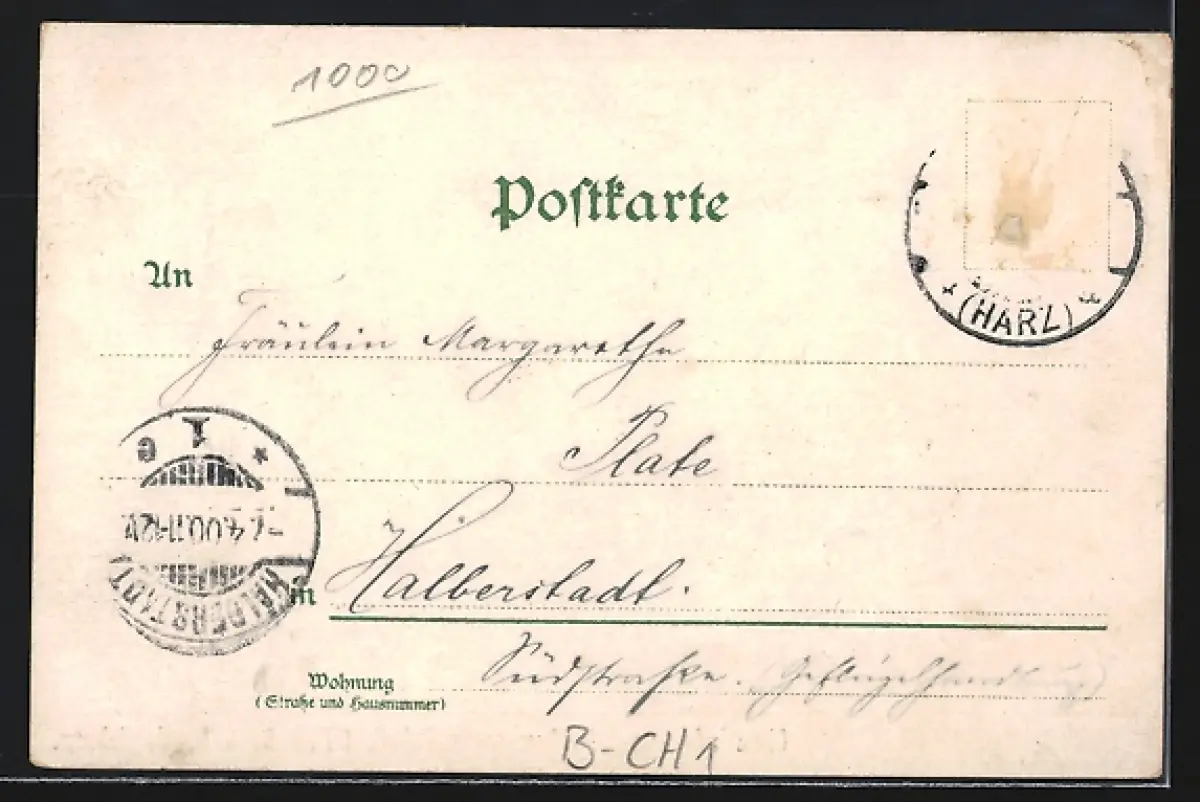 1000
Postkarte
(HARZ)
An
Fräulein Margarethe
Plate
1 G
4.00.11-12V.
HALBERSTADT
in Halberstadt.
Südstraße. (Geflügelhandlung)
Wohnung
(Straße und Hausnummer)
B-CH1